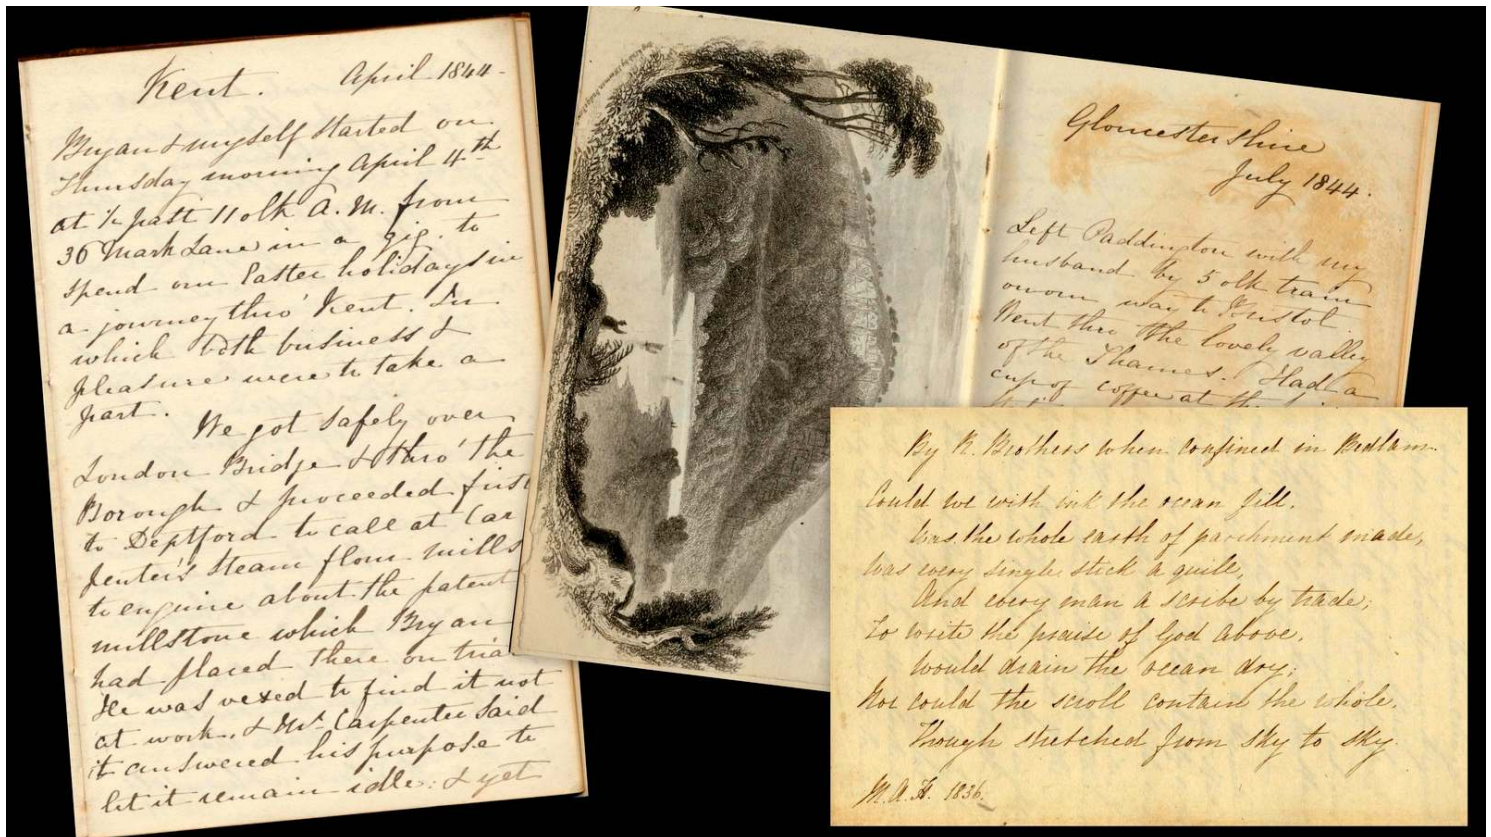 Kent. April 1844
Bryan & myself started on
Thursday morning April 4th
at ½ past 11 olk A.M. from
36 Mark Lane in a gig. to
spend our Easter holidays in
a journey thro' Kent. In
which both business &
pleasure were to take a
part.
We got safely over
London Bridge & thro' the
Borough & proceeded first
to Deptford to call at Car
penter's steam flour mills
to enquire about the patent
millstone which Bryan
had placed there on tria
He was vexed to find it not
at work, & Mr. Carpenter said
it answered his purpose to
let it remain idle: & yet
Gloucestershire
July 1844.
Left Paddington with my
husband by 5 olk train
on our way to Bristol.
Went thro the lovely valley
of the Thames. Had a
cup of coffee at the
By R. Brothers when confined in Bedlam.
Could we with ink the ocean fill,
Was the whole earth of parchment made,
Was every single stick a quill,
And every man a scribe by trade;
To write the praise of God above,
Would drain the ocean dry;
Nor could the scroll contain the whole,
Though stretched from sky to sky.
M.A.H. 1836.